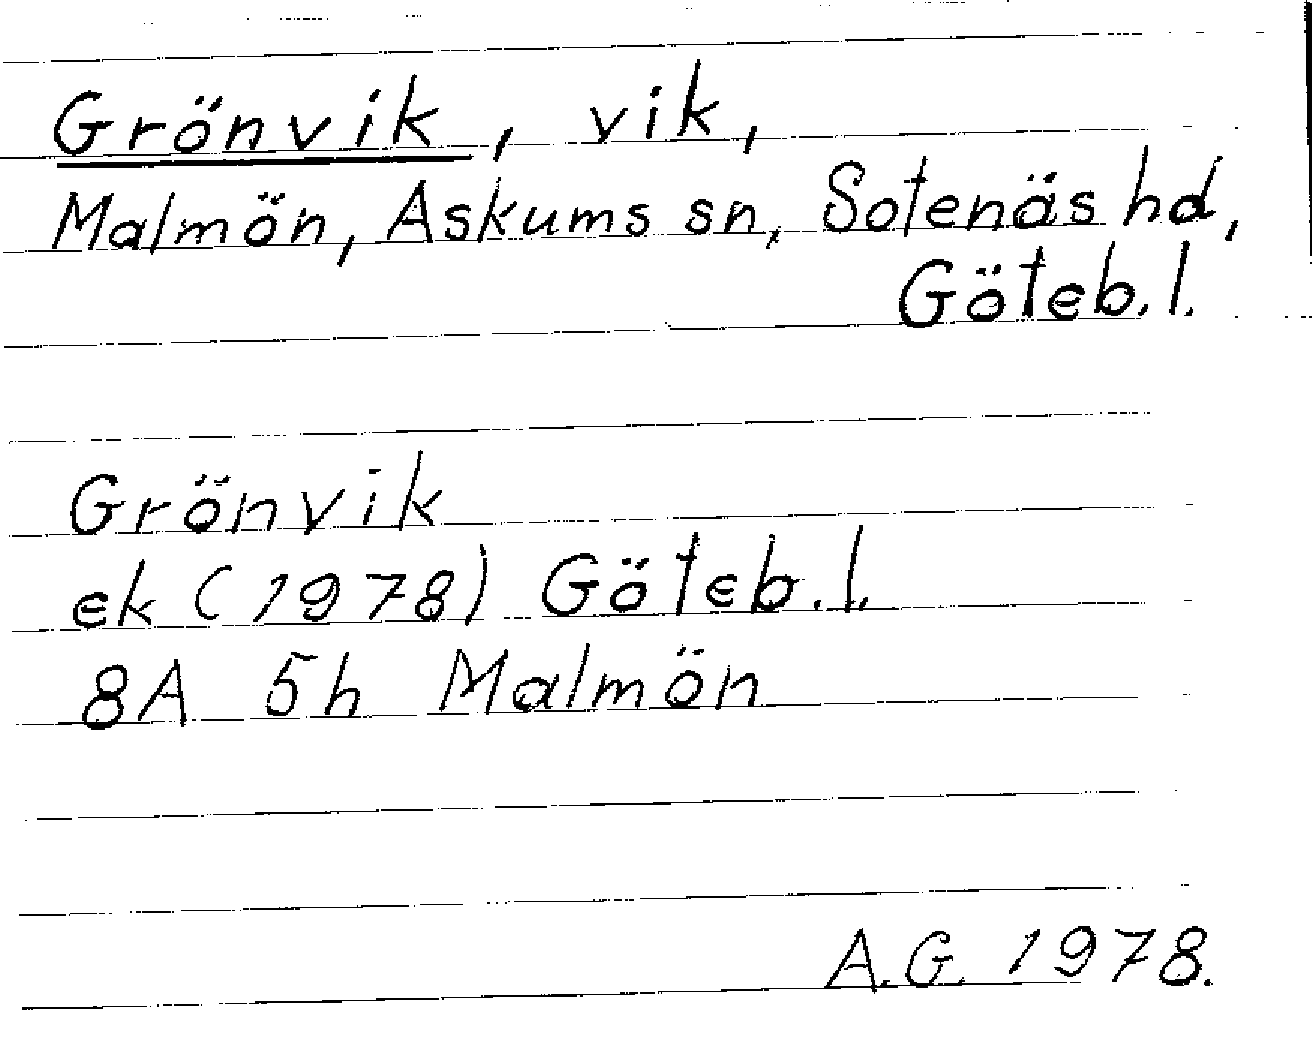 Grönvik, vik,
Malmön, Askums sn, Sotenäs hd,
Göteb. l.
Grönvik
ek (1978) Göteb. l.
8A 5h Malmön
A.G. 1978.